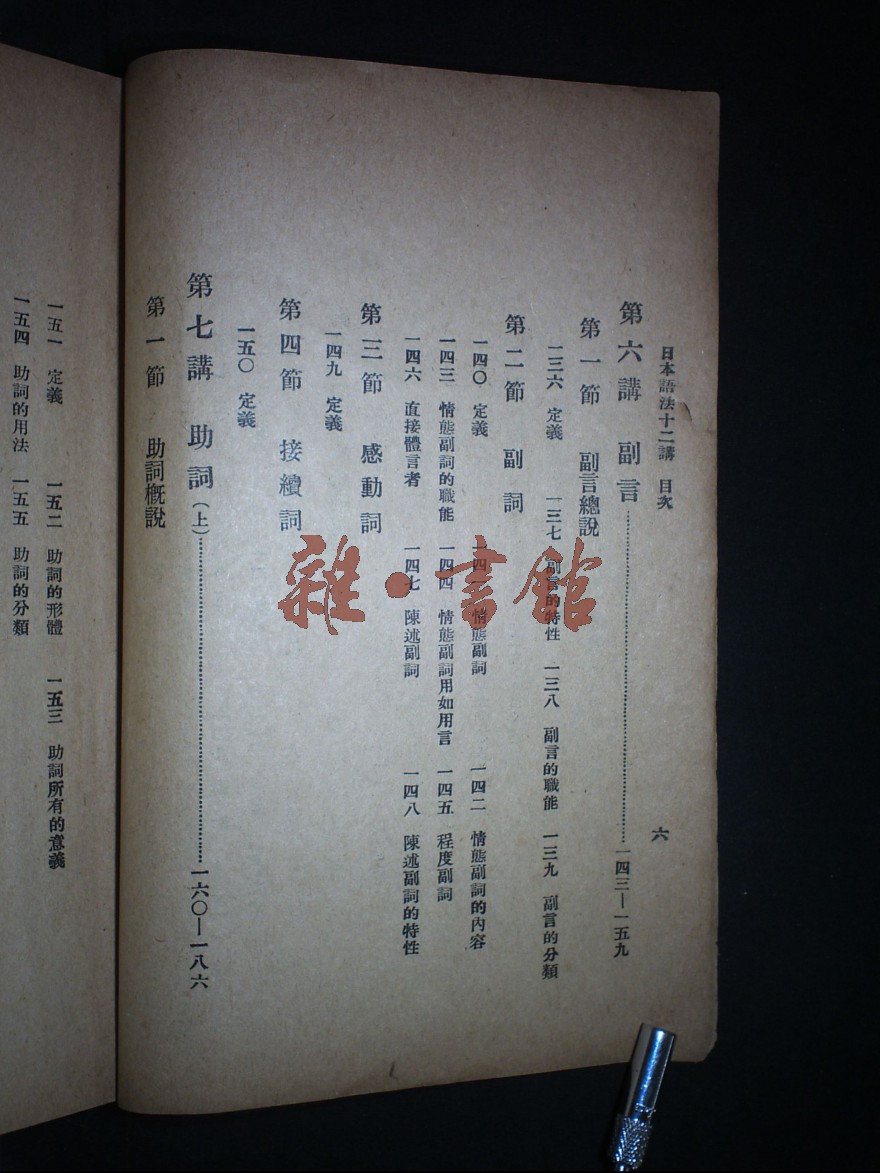 日本語法十二講 目次 六
第六講 副言 一四三—一五九
第一節 副言總說
一三六 定義 一三七 副言的特性 一三八 副言的職能 一三九 副言的分類
第二節 副詞
一四〇 定義 一四一 情態副詞 一四二 情態副詞的內容
一四三 情態副詞的職能 一四四 情態副詞用如用言 一四五 程度副詞
一四六 直接體言者 一四七 陳述副詞 一四八 陳述副詞的特性
第三節 感動詞
一四九 定義
第四節 接續詞
一五〇 定義
第七講 助詞(上) 一六〇—一八六
第一節 助詞概說
一五一 定義 一五二 助詞的形體 一五三 助詞所有的意義
一五四 助詞的用法 一五五 助詞的分類
雜·書館